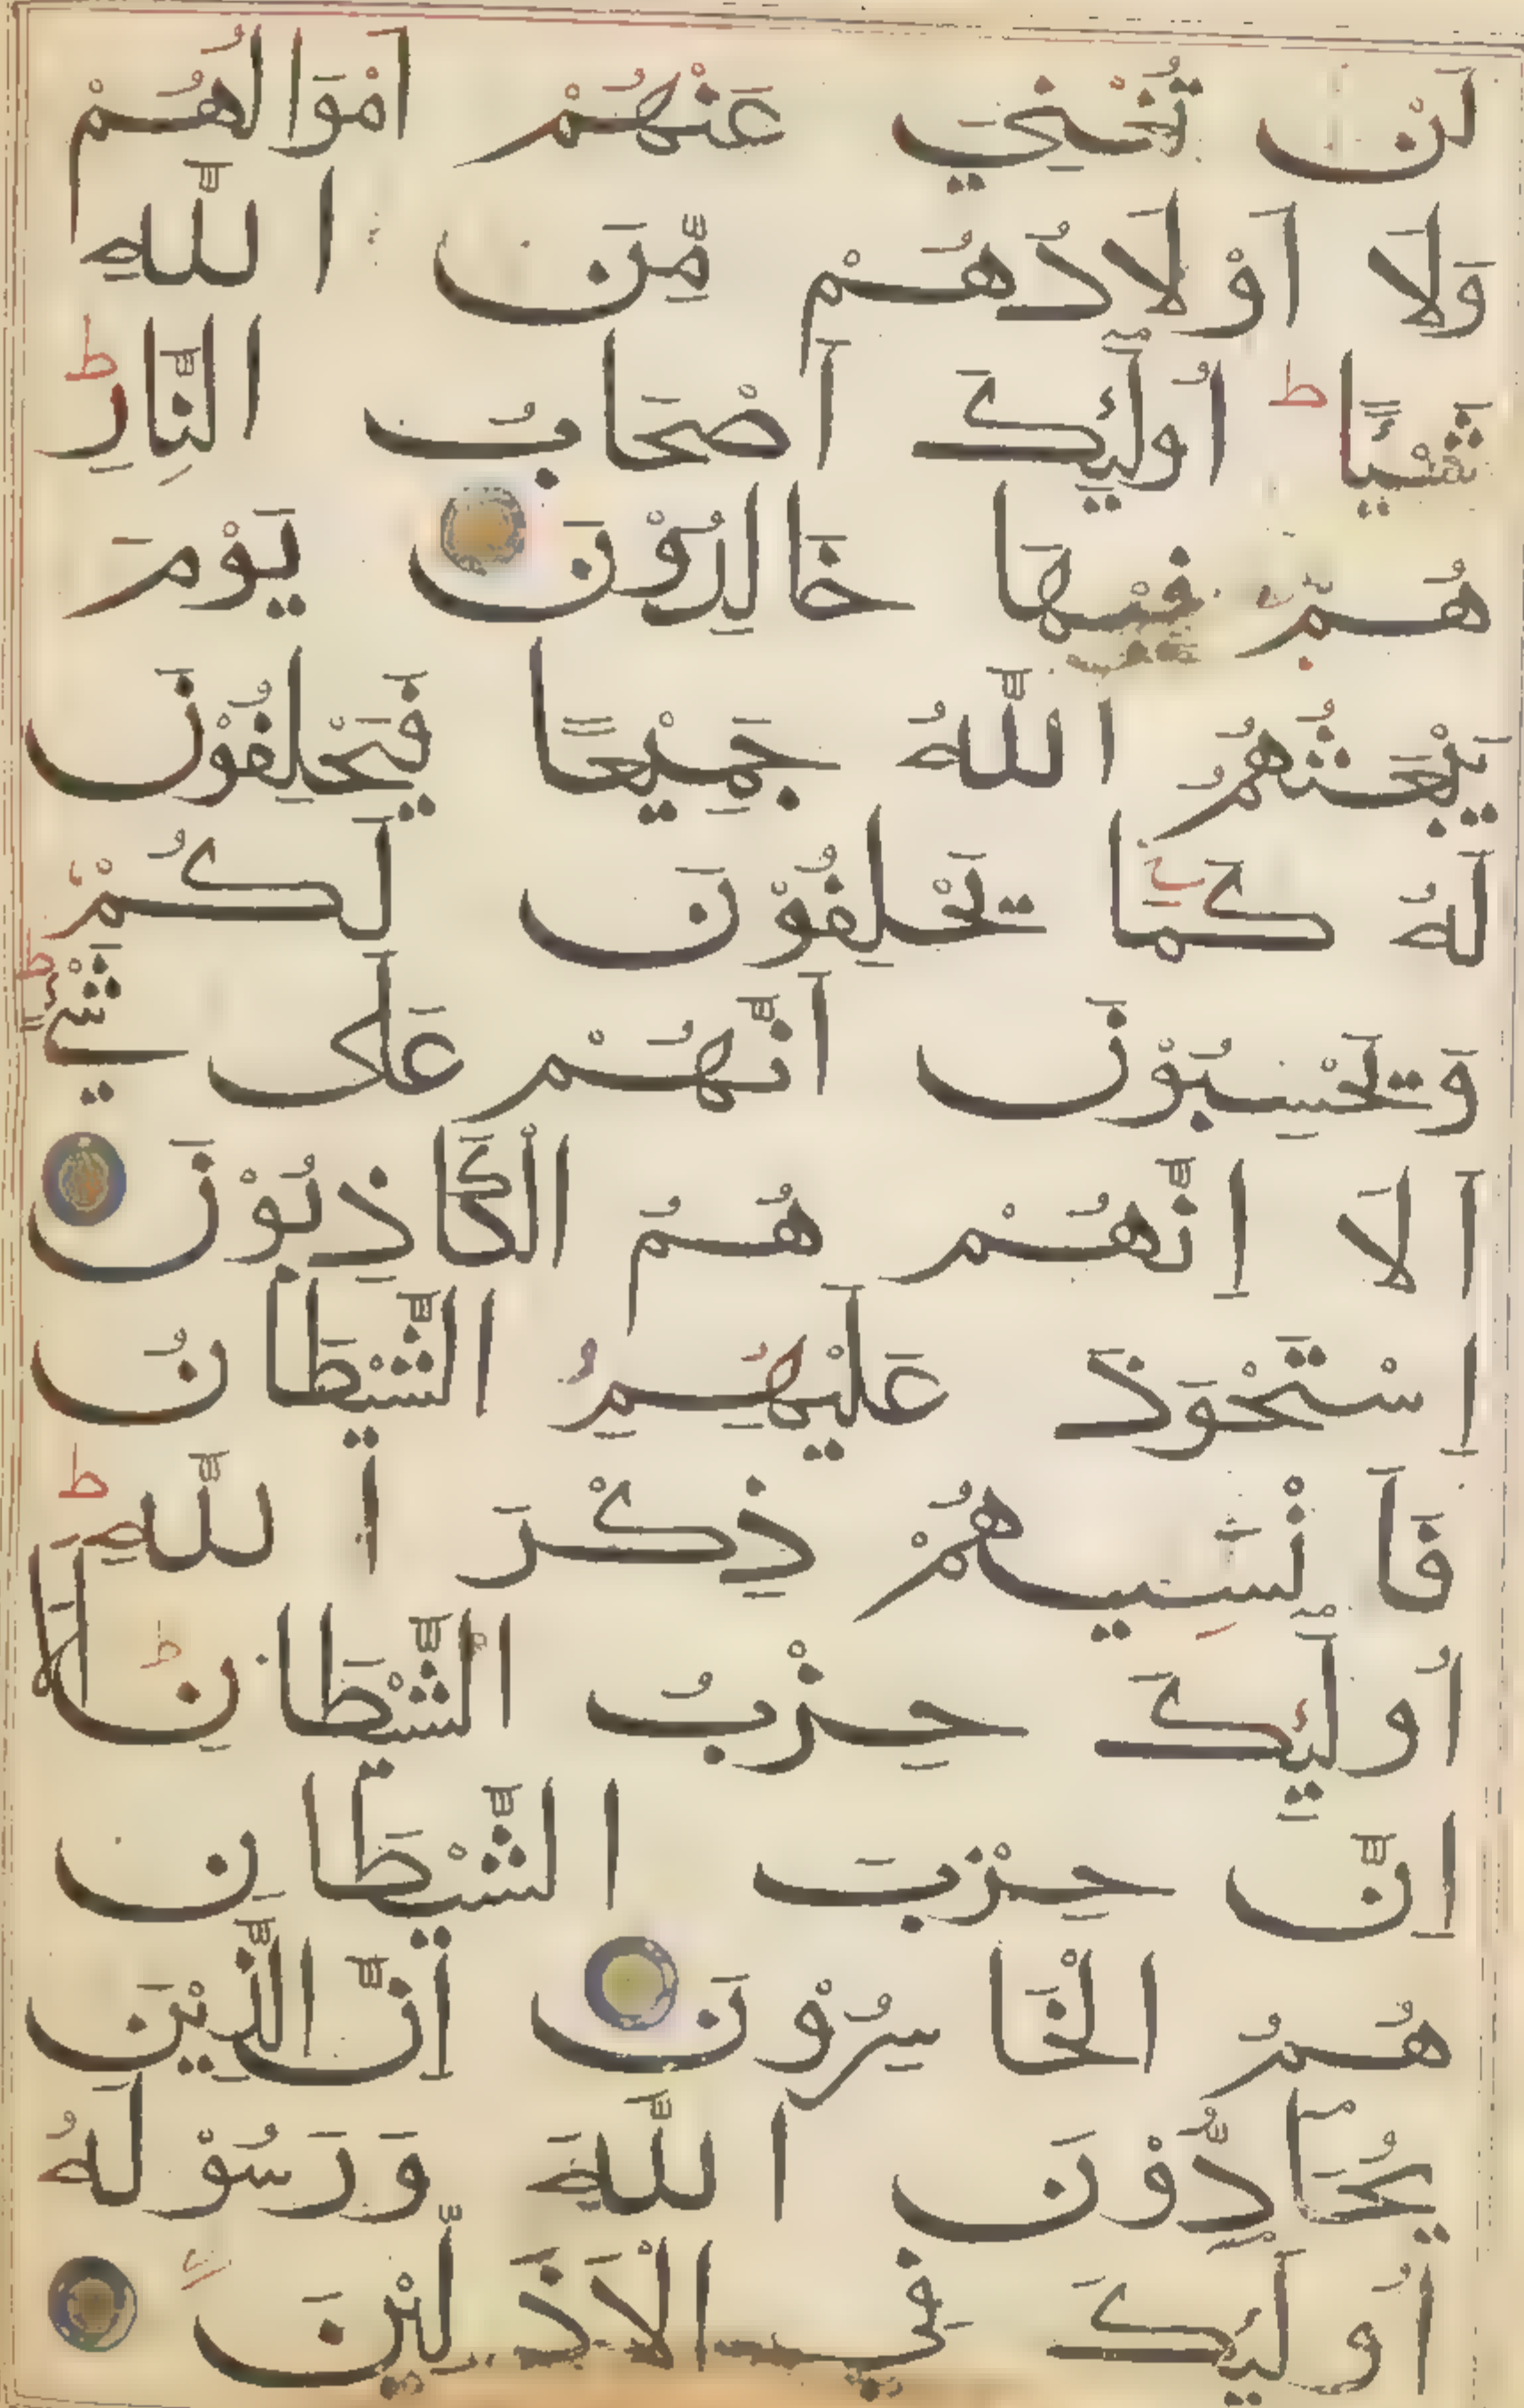 لَنْ تُغْنِيَ عَنْهُمْ اَمْوَالُهُمْ
وَلَا اَوْلَادُهُمْ مِّنَ اللّٰهِ
شَيْـًٔا ط اُولٰٓئِكَ اَصْحَابُ النَّارِ ط
هُمْ فِيْهَا خَالِدُوْنَ يَوْمَ
يَبْعَثُهُمُ اللّٰهُ جَمِيْعًا فَيَحْلِفُوْنَ
لَهُ كَمَا يَحْلِفُوْنَ لَكُمْ
وَيَحْسَبُوْنَ اَنَّهُمْ عَلٰى شَيْءٍ ط
اَلَا اِنَّهُمْ هُمُ الْكَاذِبُوْنَ
اِسْتَحْوَذَ عَلَيْهِمُ الشَّيْطَانُ
فَاَنْسٰيهُمْ ذِكْرَ اللّٰهِ ط
اُولٰٓئِكَ حِزْبُ الشَّيْطَانِ ط اَلَا
اِنَّ حِزْبَ الشَّيْطَانِ
هُمُ الْخَاسِرُوْنَ اِنَّ الَّذِيْنَ
يُحَآدُّوْنَ اللّٰهَ وَرَسُوْلَهُ
اُولٰٓئِكَ فِي الْاَذَلِّيْنَ